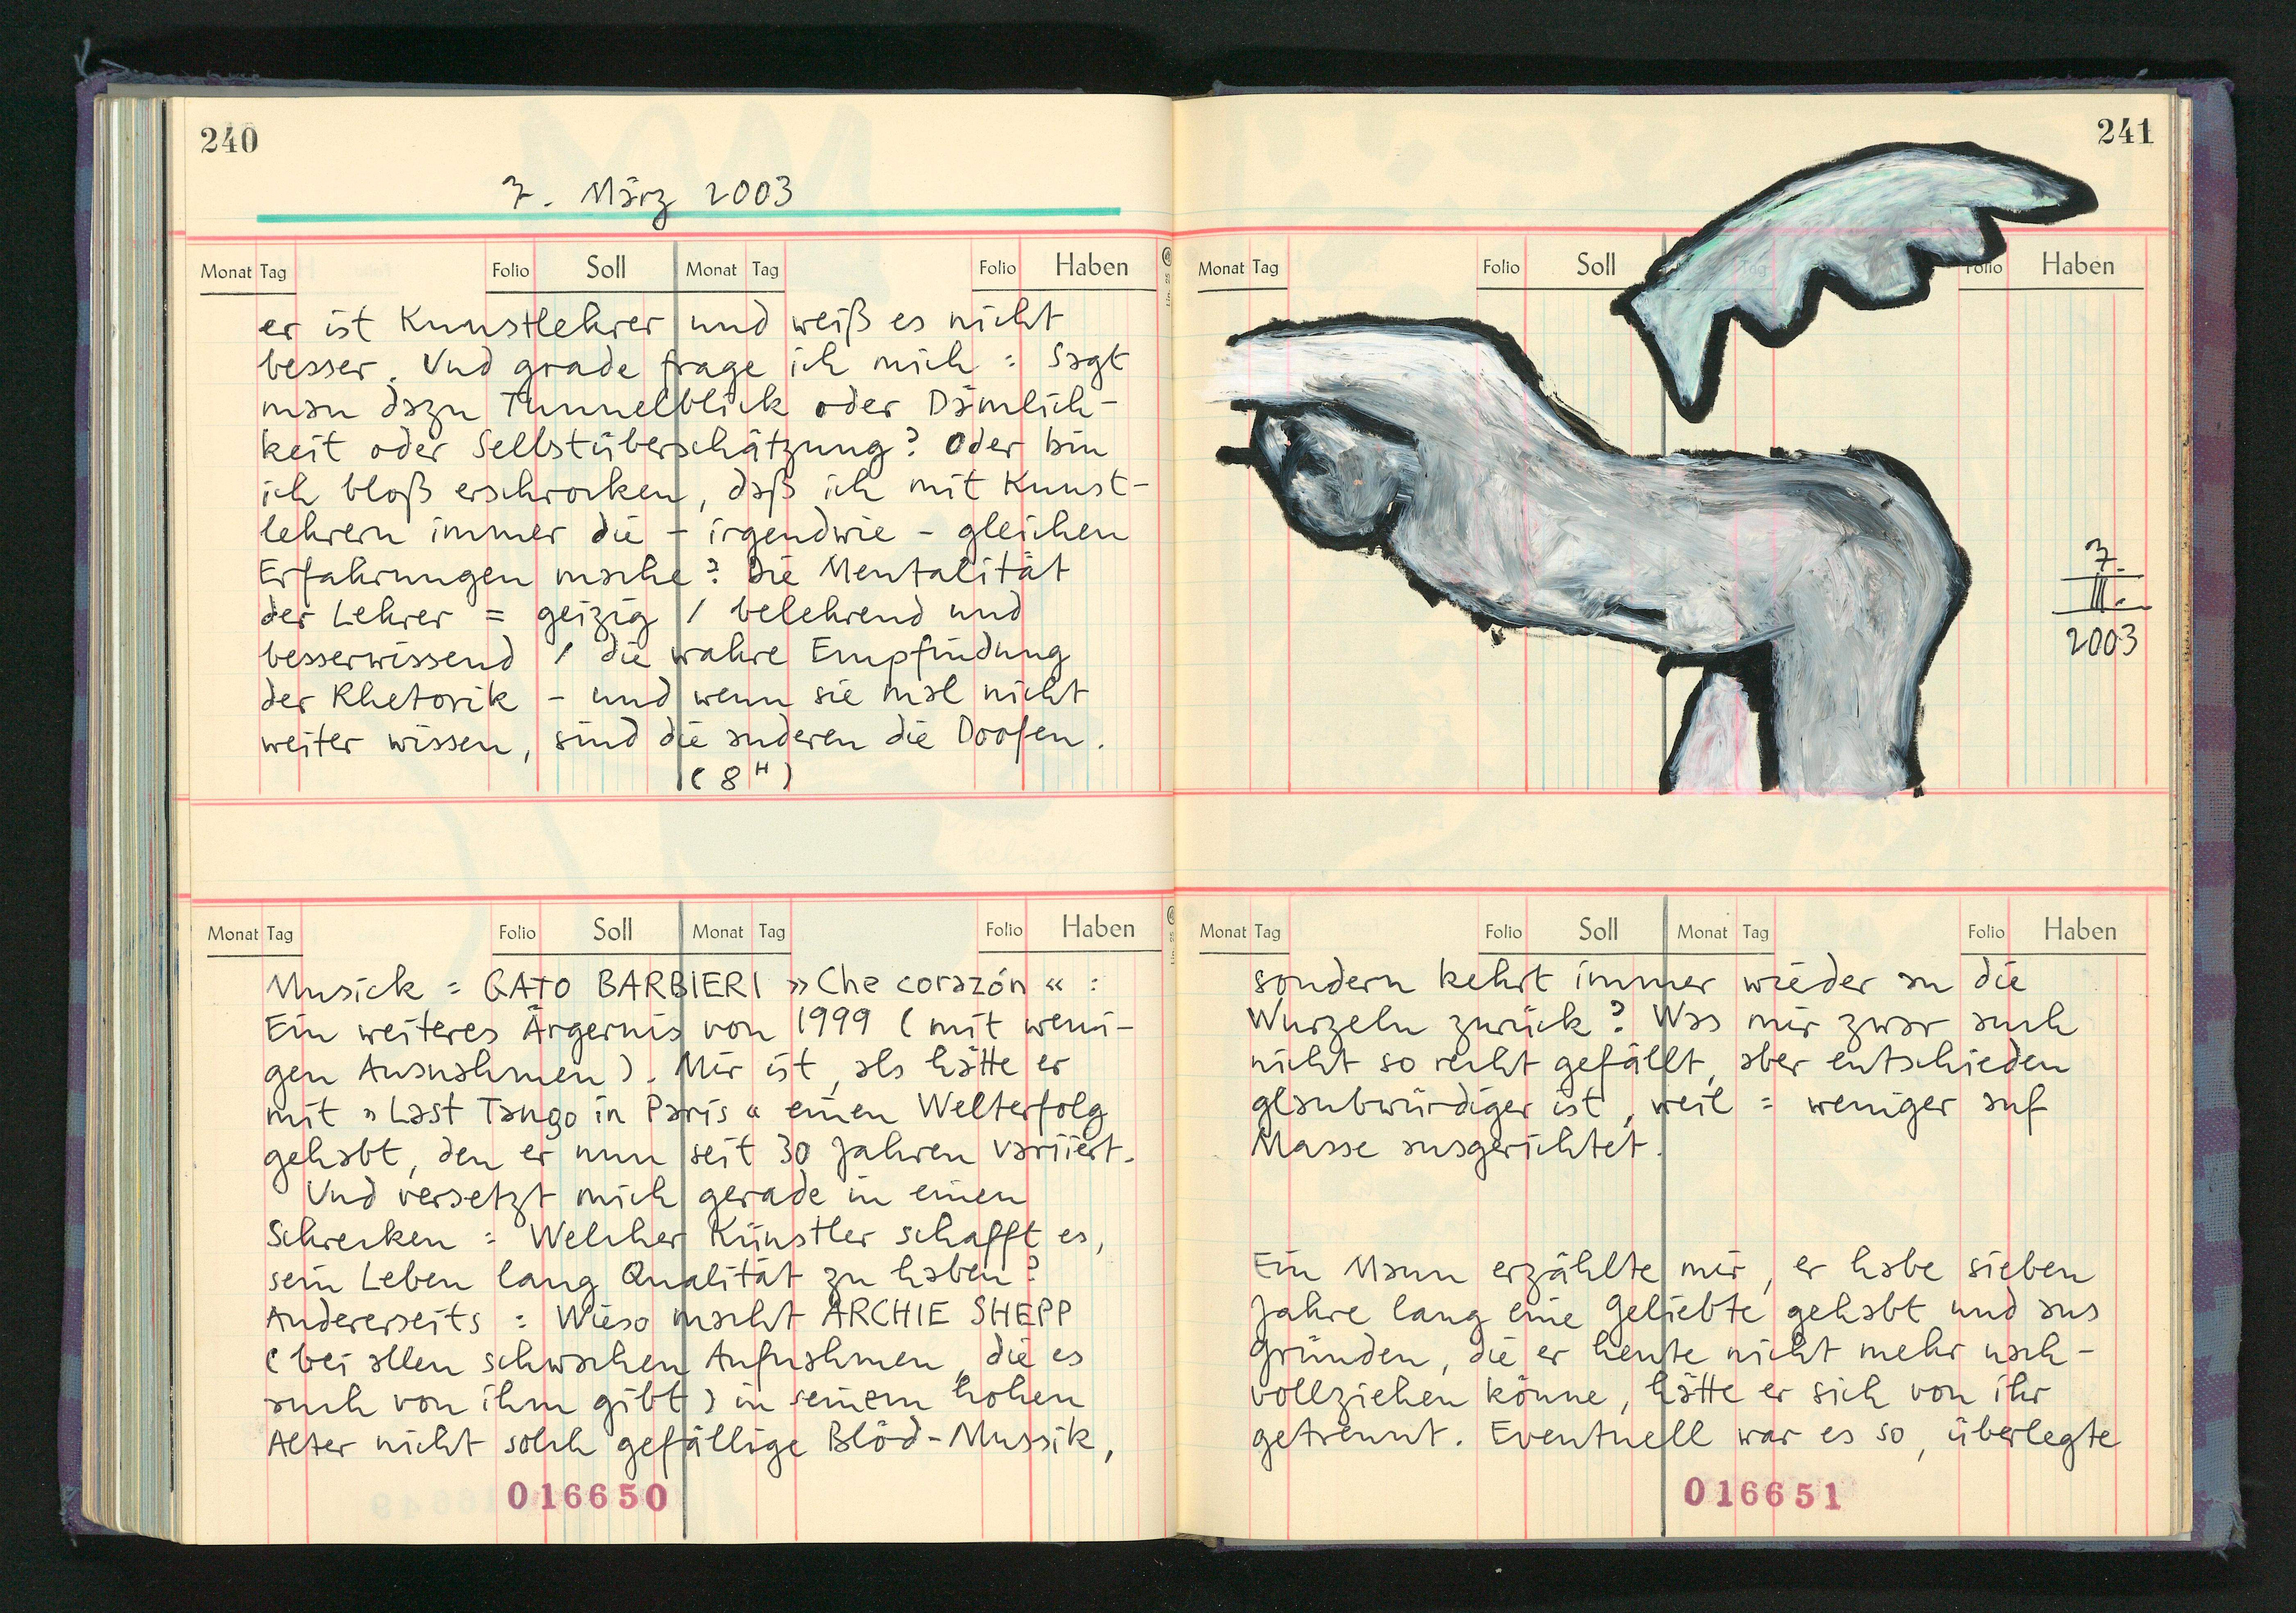 240
7. März 2003
Monat Tag Folio Soll Monat Tag Folio Haben
er ist Kunstlehrer und weiß es nicht
besser. Und grade frage ich mich : Sagt
man dazu Tunnelblick oder Dämlich-
keit oder Selbstüberschätzung? Oder bin
ich bloß erschrocken, daß ich mit Kunst-
lehrern immer die - irgendwie - gleichen
Erfahrungen mache? Die Mentalität
der Lehrer = geizig / belehrend und
besserwissend / die wahre Empfindung
der Rhetorik - und wenn sie mal nicht
weiter wissen, sind die anderen die Doofen.
(8H)
Monat Tag Folio Soll Monat Tag Folio Haben
Musick = GATO BARBIERI »Che corazón« :
Ein weiteres Ärgernis von 1999 (mit weni-
gen Ausnahmen). Mir ist, als hätte er
mit »Last Tango in Paris« einen Welterfolg
gehabt, den er nun seit 30 Jahren variiert.
Und versetzt mich gerade in einen
Schrecken : Welcher Künstler schafft es,
sein Leben lang Qualität zu haben?
Andererseits : Wieso macht ARCHIE SHEPP
(bei allen schwachen Aufnahmen, die es
auch von ihm gibt) in seinem hohen
Alter nicht solch gefällige Blöd-Mussik,
016650
241
Monat Tag Folio Soll Tag Folio Haben
7.
III.
2003
Monat Tag Folio Soll Monat Tag Folio Haben
sondern kehrt immer wieder an die
Wurzeln zurück? Was mir zwar auch
nicht so recht gefällt, aber entschieden
glaubwürdiger ist, weil = weniger auf
Masse ausgerichtet.
Ein Mann erzählte mir, er habe sieben
Jahre lang eine Geliebte gehabt und aus
Gründen, die er heute nicht mehr nach-
vollziehen könne, hätte er sich von ihr
getrennt. Eventuell war es so, überlegte
016651